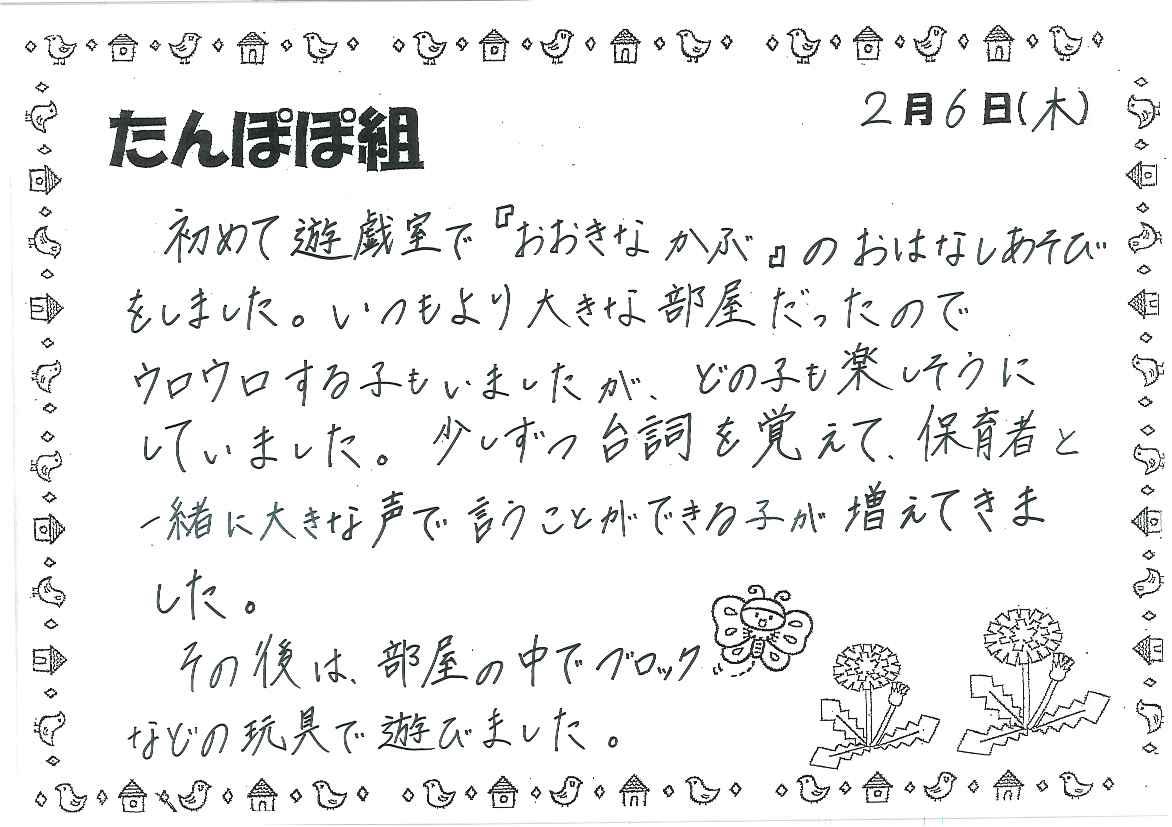 2月6日(木)
たんぽぽ組
初めて遊戯室で『おおきなかぶ』のおはなしあそび
をしました。いつもより大きな部屋だったので
ウロウロする子もいましたが、どの子も楽しそうに
していました。少しずつ台詞を覚えて、保育者と
一緒に大きな声で言うことができる子が増えてきま
した。
その後は、部屋の中でブロック
などの玩具で遊びました。